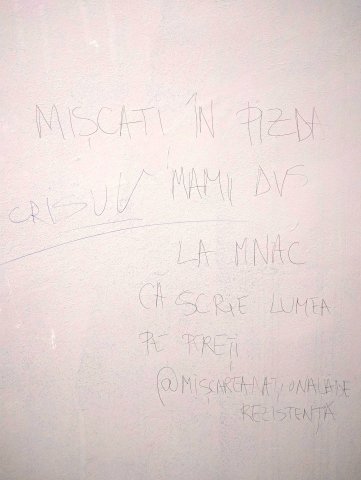 MIȘCATI ÎN PIZDA
MAMII DVS
CRISUU
LA MNAC
CĂ SCRIE LUMEA
PE PEREȚI
@MIȘCAREANAȚIONALĂDE
REZISTENȚĂ